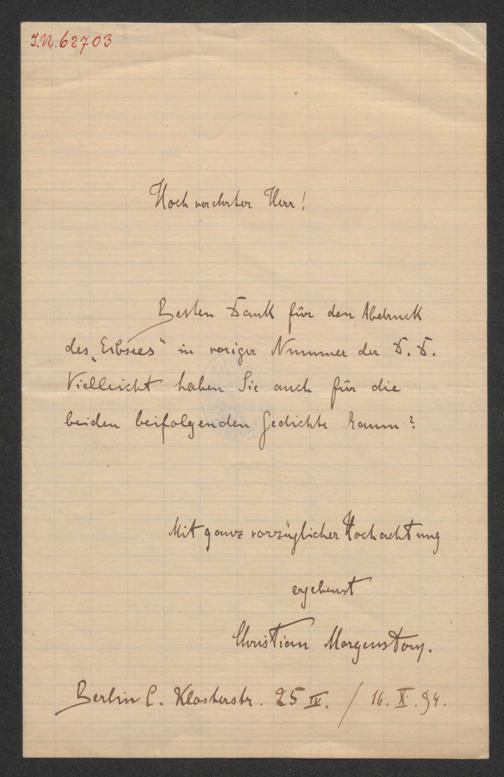 J.N. 62703
Hochverehrter Herr!
Besten Dank für den Abdruck
des „Eibsees" in voriger Nummer der D. D.
Vielleicht haben Sie auch für die
beiden beifolgenden Gedichte Raum?
Mit ganz vorzüglicher Hochachtung
ergebenst
Christian Morgenstern.
Berlin C. Klosterstr. 25 IV. / 16. X. 94.